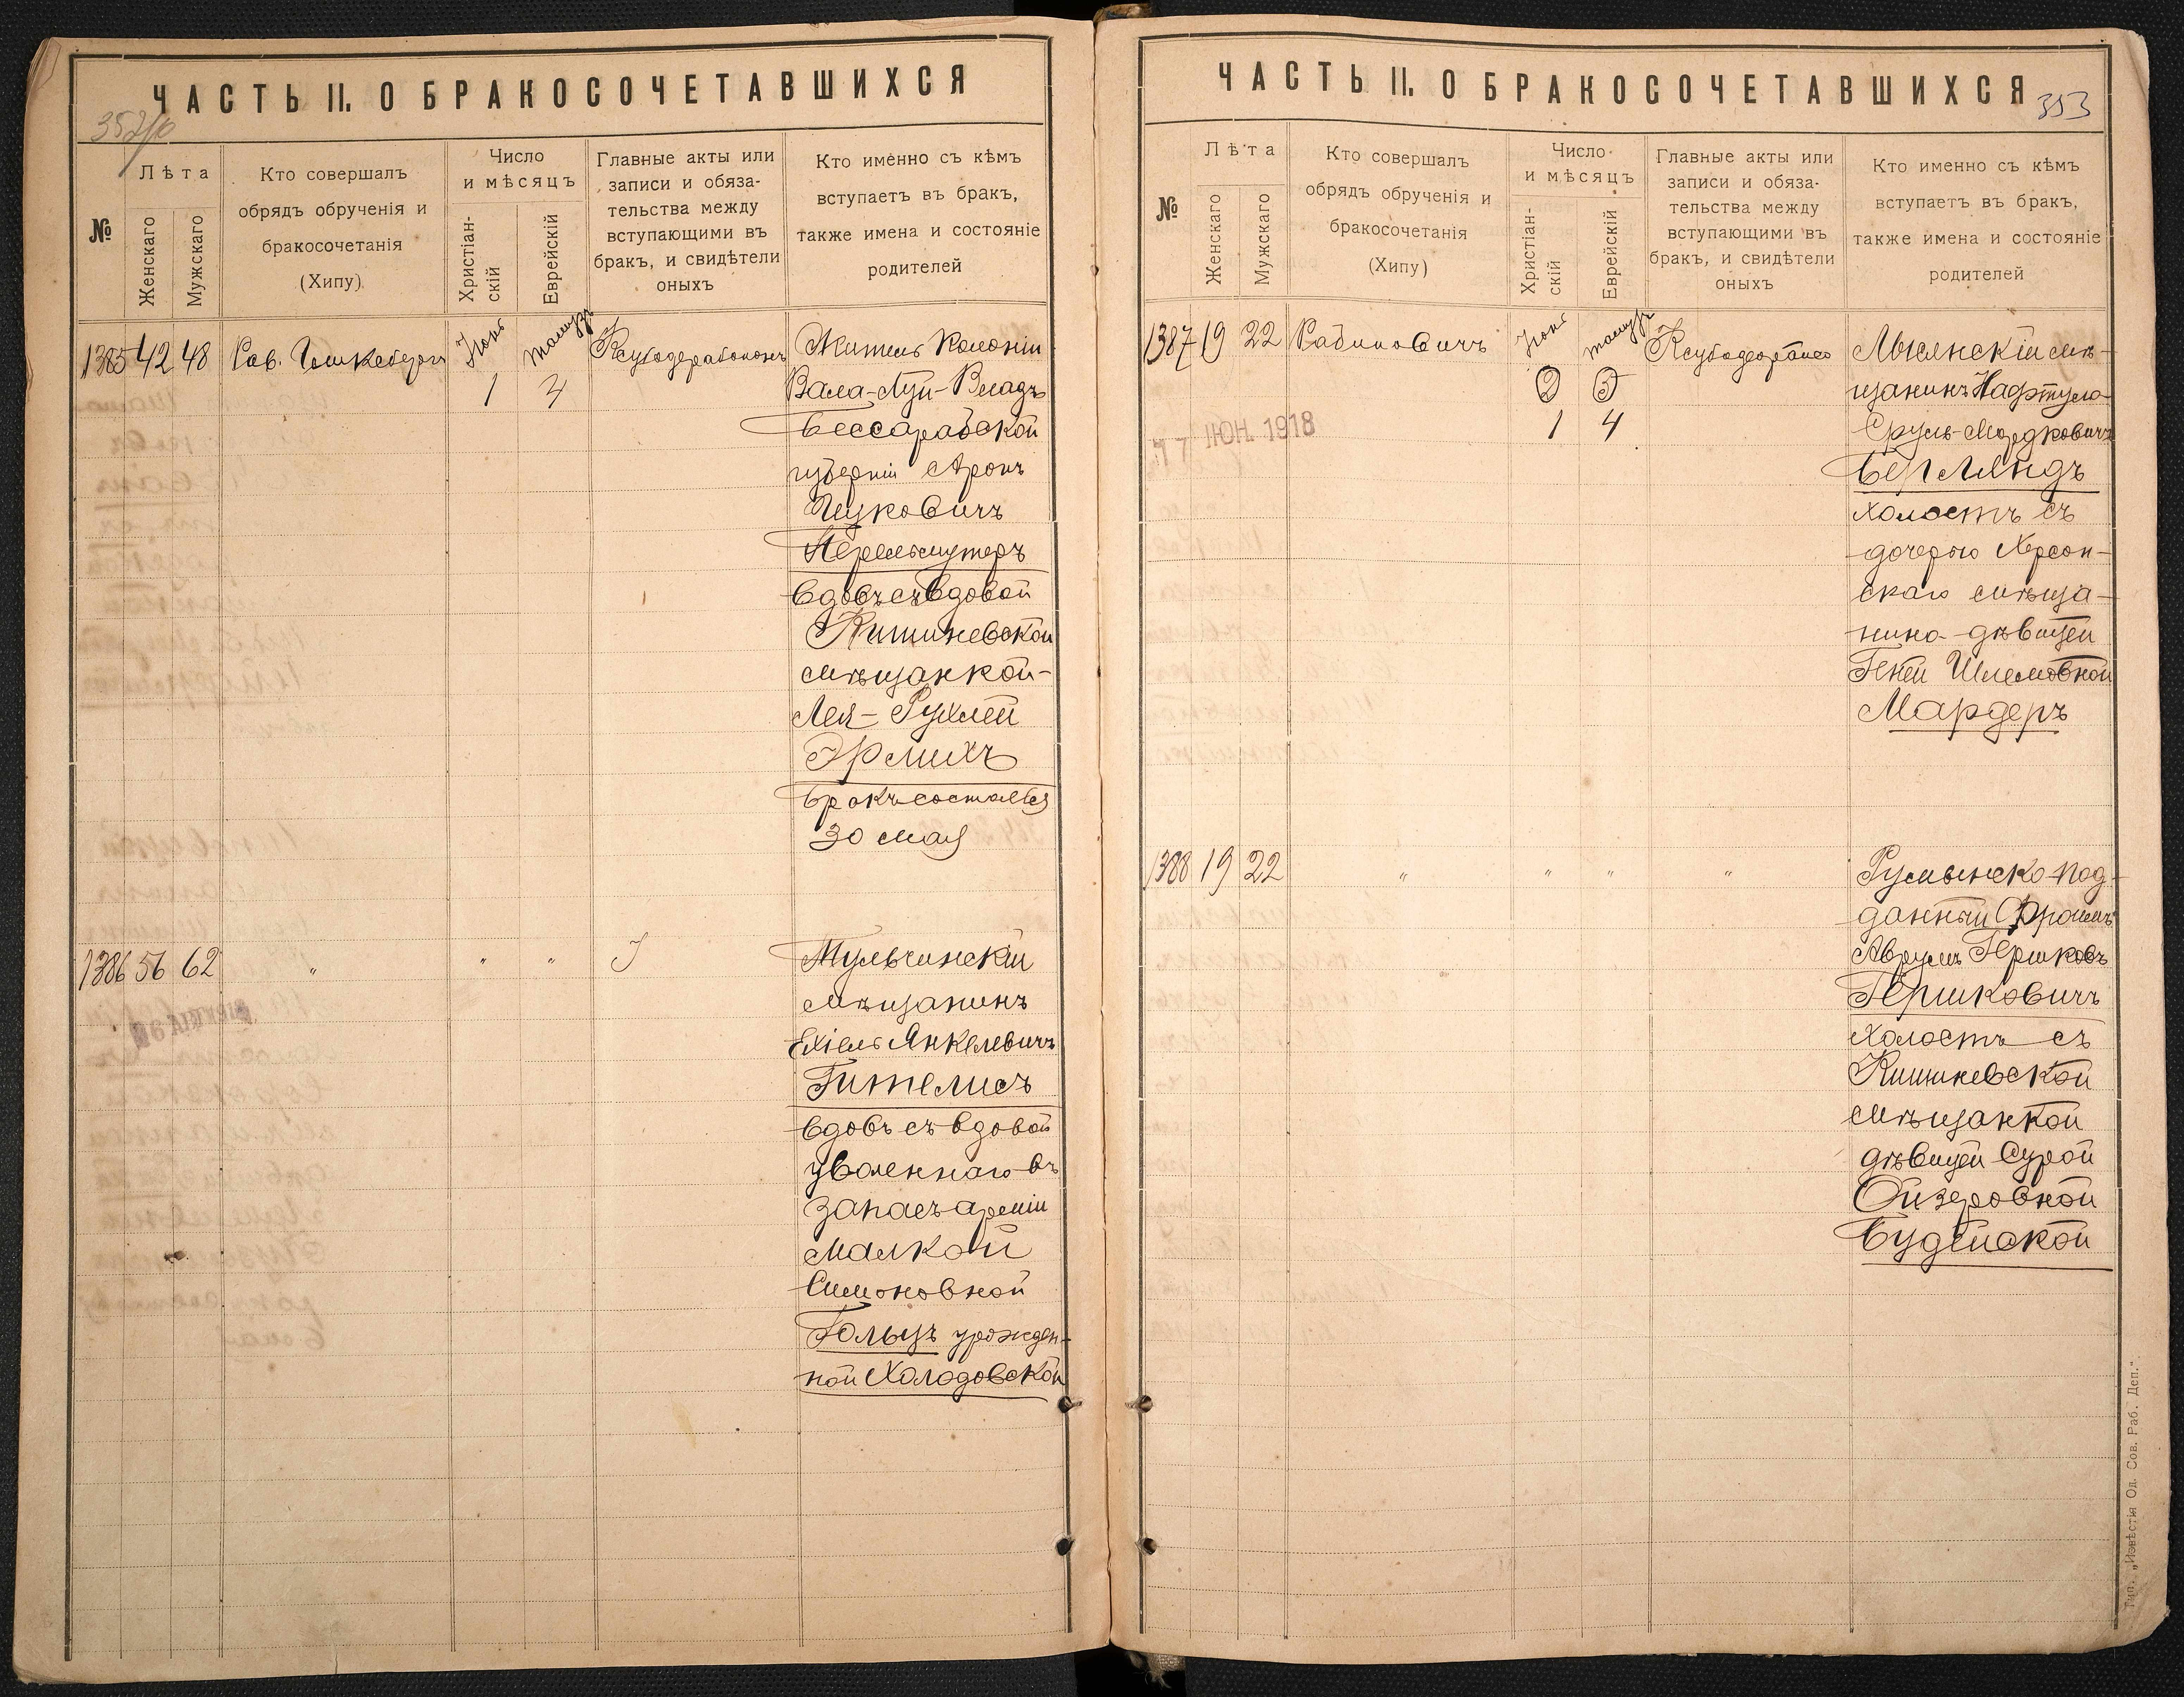 ЧАСТЬ II. О БРАКОСОЧЕТАВШИХСЯ
№
Лѣта
Женскаго
Мужскаго
Кто совершалъ
обрядъ обрученія и
бракосочетанія
(Хипу)
Число
и мѣсяцъ
Христіан-
скій
Еврейскій
Главные акты или
записи и обяза-
тельства между
вступающими въ
бракъ, и свидѣтели
оныхъ
Кто именно съ кѣмъ
вступаетъ въ бракъ,
также имена и состояніе
родителей
1385 42 48
Июнь
1
Житель Колоніи
Вала-Луй-Владъ
Бессарабской
губерніи Аронъ
Ицковичъ
Перельмутеръ
вдовъ съ вдовой
Кишиневской
мѣщанкой-
Лея-Рухлей
Эрлихъ
бракъ состоялся
30 мая
1386 56 62 " " "
Тульчинскій
мѣщанинъ
Ехіель Анкелевичъ
Гителисъ
вдовъ съ вдовой
уволеннаго въ
запасъ арміи
Малкой
Симоновной
Гольцъ урожден-
ной Холодовской
ЧАСТЬ II. О БРАКОСОЧЕТАВШИХСЯ
353
№
Лѣта
Женскаго
Мужскаго
Кто совершалъ
обрядъ обрученія и
бракосочетанія
(Хипу)
Число
и мѣсяцъ
Христіан-
скій
Еврейскій
Главные акты или
записи и обяза-
тельства между
вступающими въ
бракъ, и свидѣтели
оныхъ
Кто именно съ кѣмъ
вступаетъ въ бракъ,
также имена и состояніе
родителей
1387 19 22 Рабиновичъ
Июнь
2 5
1 4
ІЮН. 1918
мѣ-
щанинъ Нафтула
Сруль-Мордковичъ
Берляндъ
холостъ съ
дочерью Херсон-
скаго мѣща-
нина дѣвицей
Геней Шлемовной
Мардеръ
1388 19 22 " " " "
Румынско-под-
данный Фроимъ
Аврумъ Гершковъ
Гершковичъ
холостъ съ
Кишиневской
мѣщанкой
дѣвицей Сурой
Ойзеровной
Будейской
Тип. „Извѣстія Од. Сов. Раб. Деп."